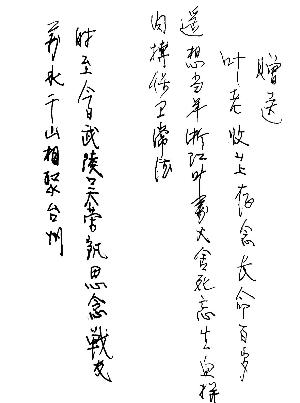 赠送
叶老收上存念长命百岁
遥想当年浙江叶大舍死忘生血拼
肉搏保卫常德
时至今日武陵吴荣凯思念战友
万水千山相聚台州